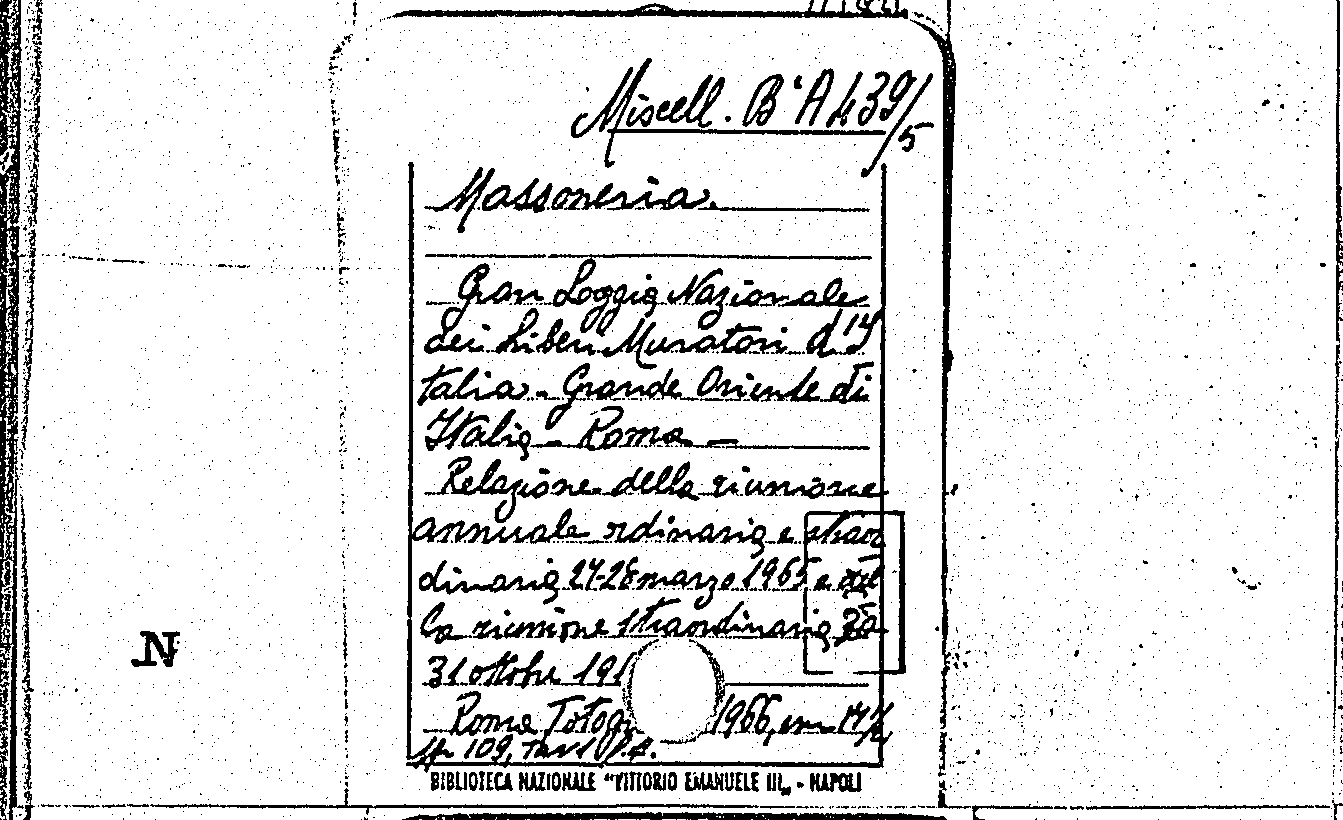 Miscell. B'A 439/5
Massoneria.
Gran Loggia Nazionale
dei Liberi Muratori d'I
talia - Grande Oriente di
Italia - Roma -
Relazione della riunione
annuale rdinaria e straor
dinaria 27-28 marzo 1965 e del
la riunione straordinaria 30
31 ottobre 19
Roma, 1966, cm
109, tav. 1
BIBLIOTECA NAZIONALE "VITTORIO EMANUELE III„ - NAPOLI
N